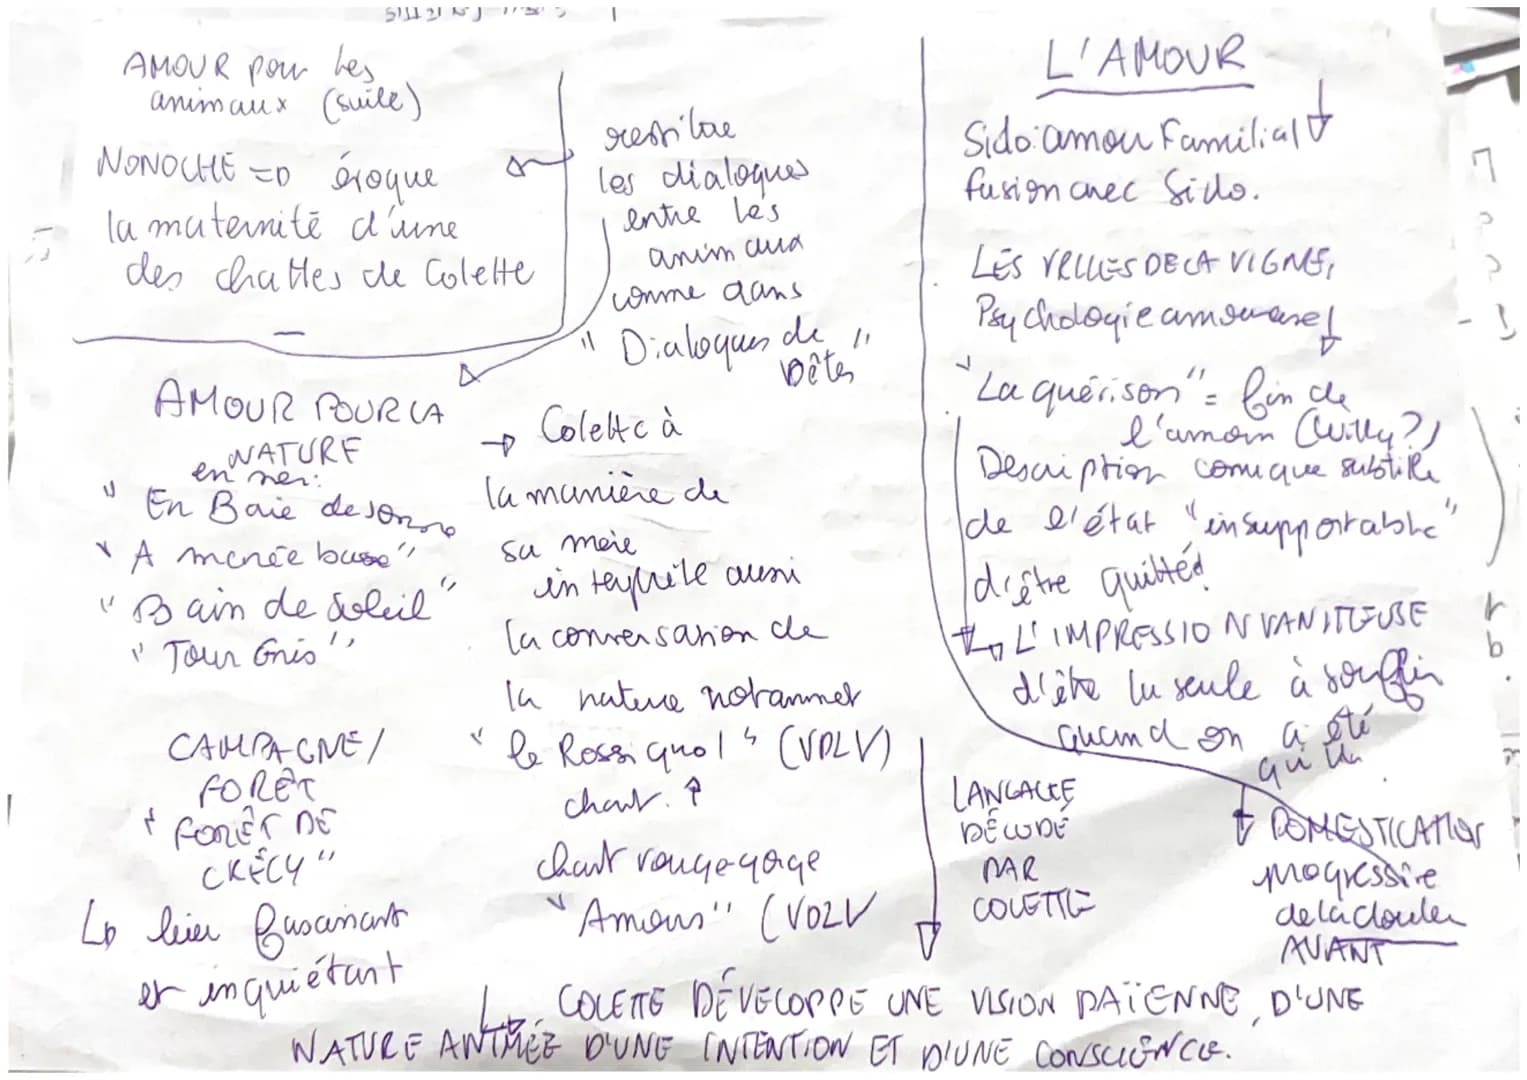 AMOUR pour les
animaux (suite)
NONOCHE => évoque
la maternité d'une
des chattes de Colette
restitue
les dialogues
entre les
animaux
comme dans
"Dialogues de
bêtes"
AMOUR POUR LA
NATURE
en mer:
"En Baie de Somme
"A marée basse"
"Bain de soleil"
"Jour Gris"
CAMPAGNE/
FORÊT
"FORÊT DE
CRÉCY"
↳ lieu fascinant
et inquiétant
→ Colette à
la manière de
sa mère
interprète aussi
la conversation de
la nature notammet
"le Rossignol" (VDLV)
chant. ↑
chant rouge-gorge
"Amours" (VDLV
LANGAGE
DÉCODÉ
PAR
COLETTE
↳ COLETTE DÉVELOPPE UNE VISION PAÏENNE, D'UNE
NATURE ANIMÉE D'UNE INTENTION ET D'UNE CONSCIENCE.
L'AMOUR
Sido: amour Familial
fusion avec Sido.
LES VRILLES DE LA VIGNE,
Psychologie amoureuse
"La guérison" = fin de
l'amour (Willy?)
Description comique subtile
de l'état "insupportable"
d'être quitté
↳ L'IMPRESSION VANITEUSE
d'être la seule à souffrir
quand on a été
DOMESTICATION
progressive
de la douleur
AVANT